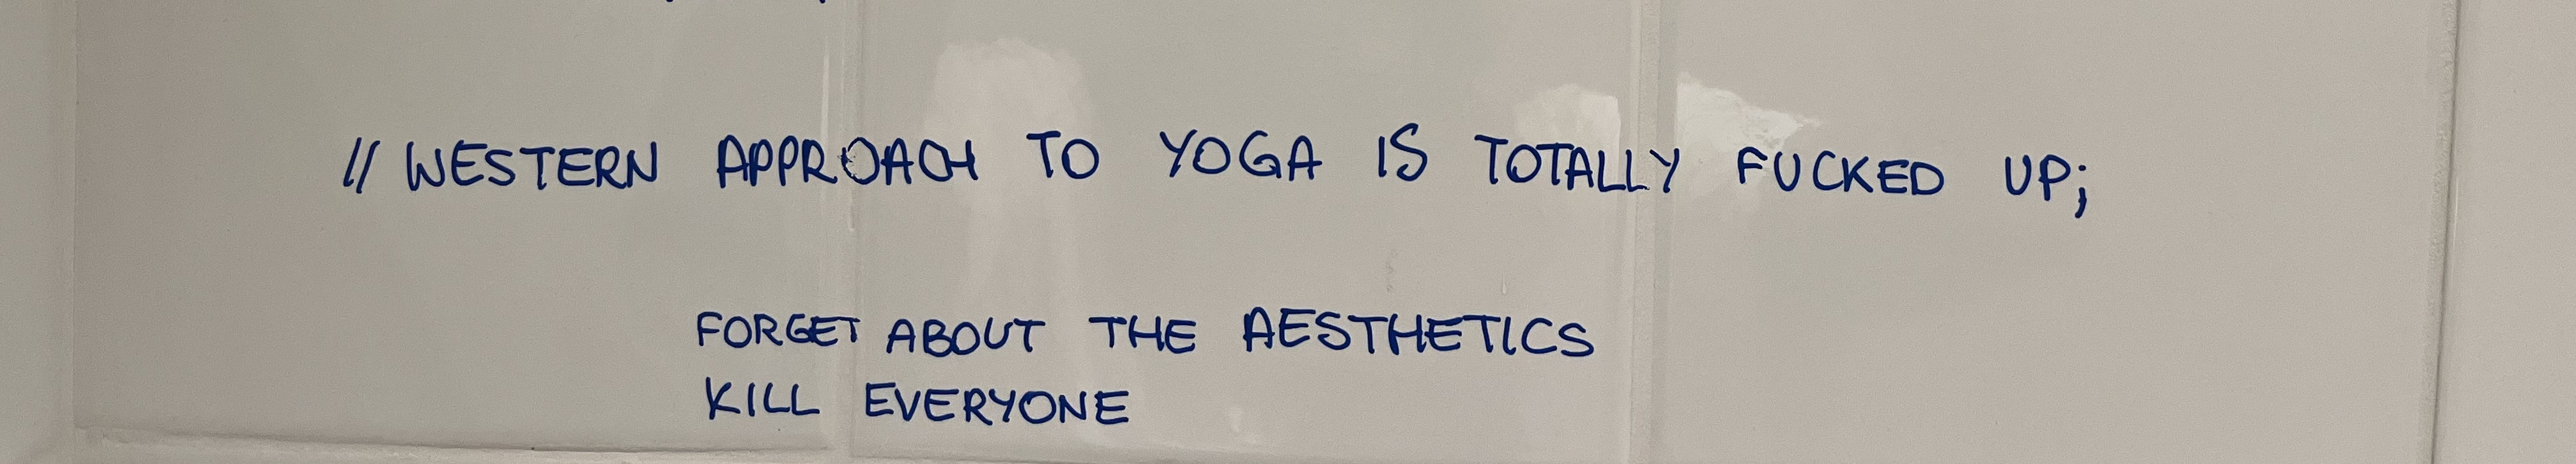 // WESTERN APPROACH TO YOGA IS TOTALLY FUCKED UP;
FORGET ABOUT THE AESTHETICS
KILL EVERYONE